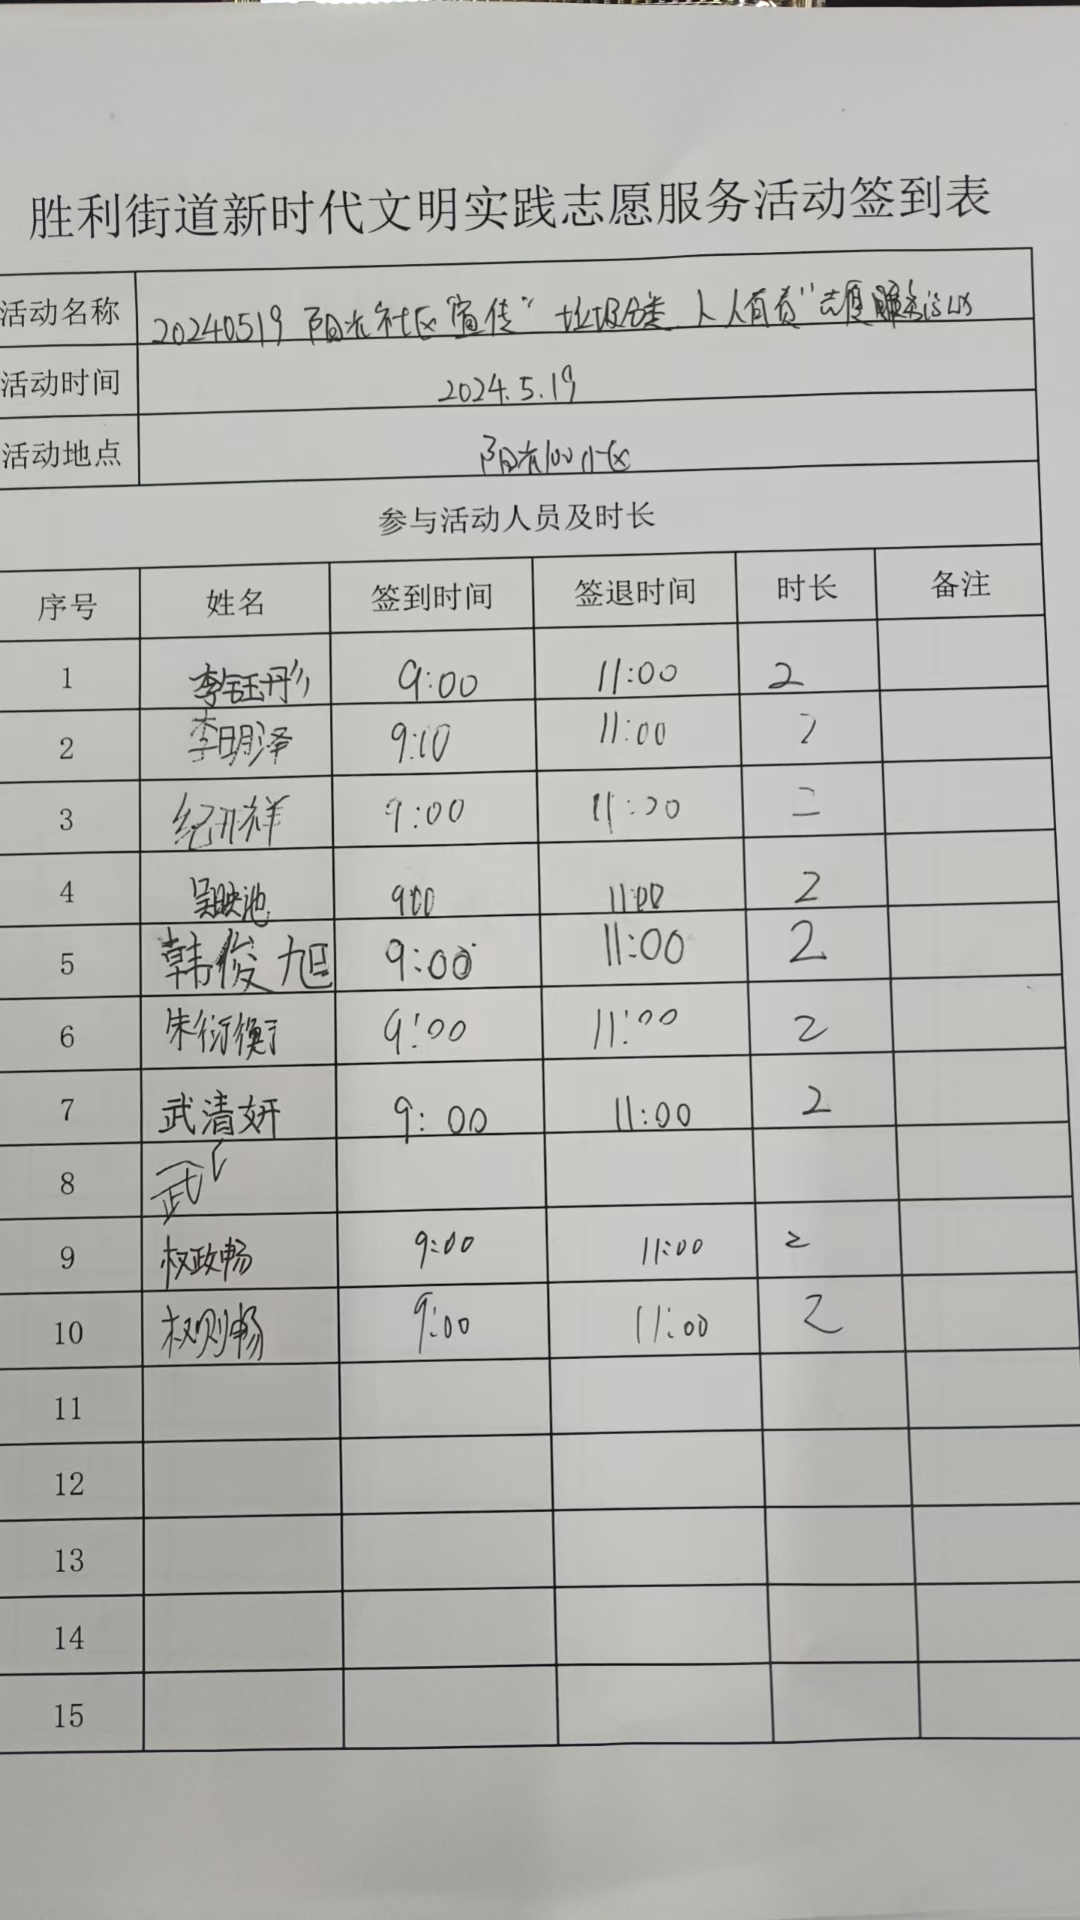 胜利街道新时代文明实践志愿服务活动签到表
活动名称 20240519 阳光社区宣传“垃圾分类 人人有责”志愿服务活动
活动时间 2024.5.19
活动地点 阳光100小区
参与活动人员及时长
序号 姓名 签到时间 签退时间 时长 备注
1 李钰彤 9:00 11:00 2
2 李明泽 9:10 11:00 2
3 纪开祥 9:00 11:20 二
4 吴映池 9:00 11:00 2
5 韩俊旭 9:00 11:00 2
6 朱衍衡 9:00 11:00 2
7 武清妍 9:00 11:00 2
8 武
9 权政畅 9:00 11:00 2
10 权则畅 9:00 11:00 2
11
12
13
14
15